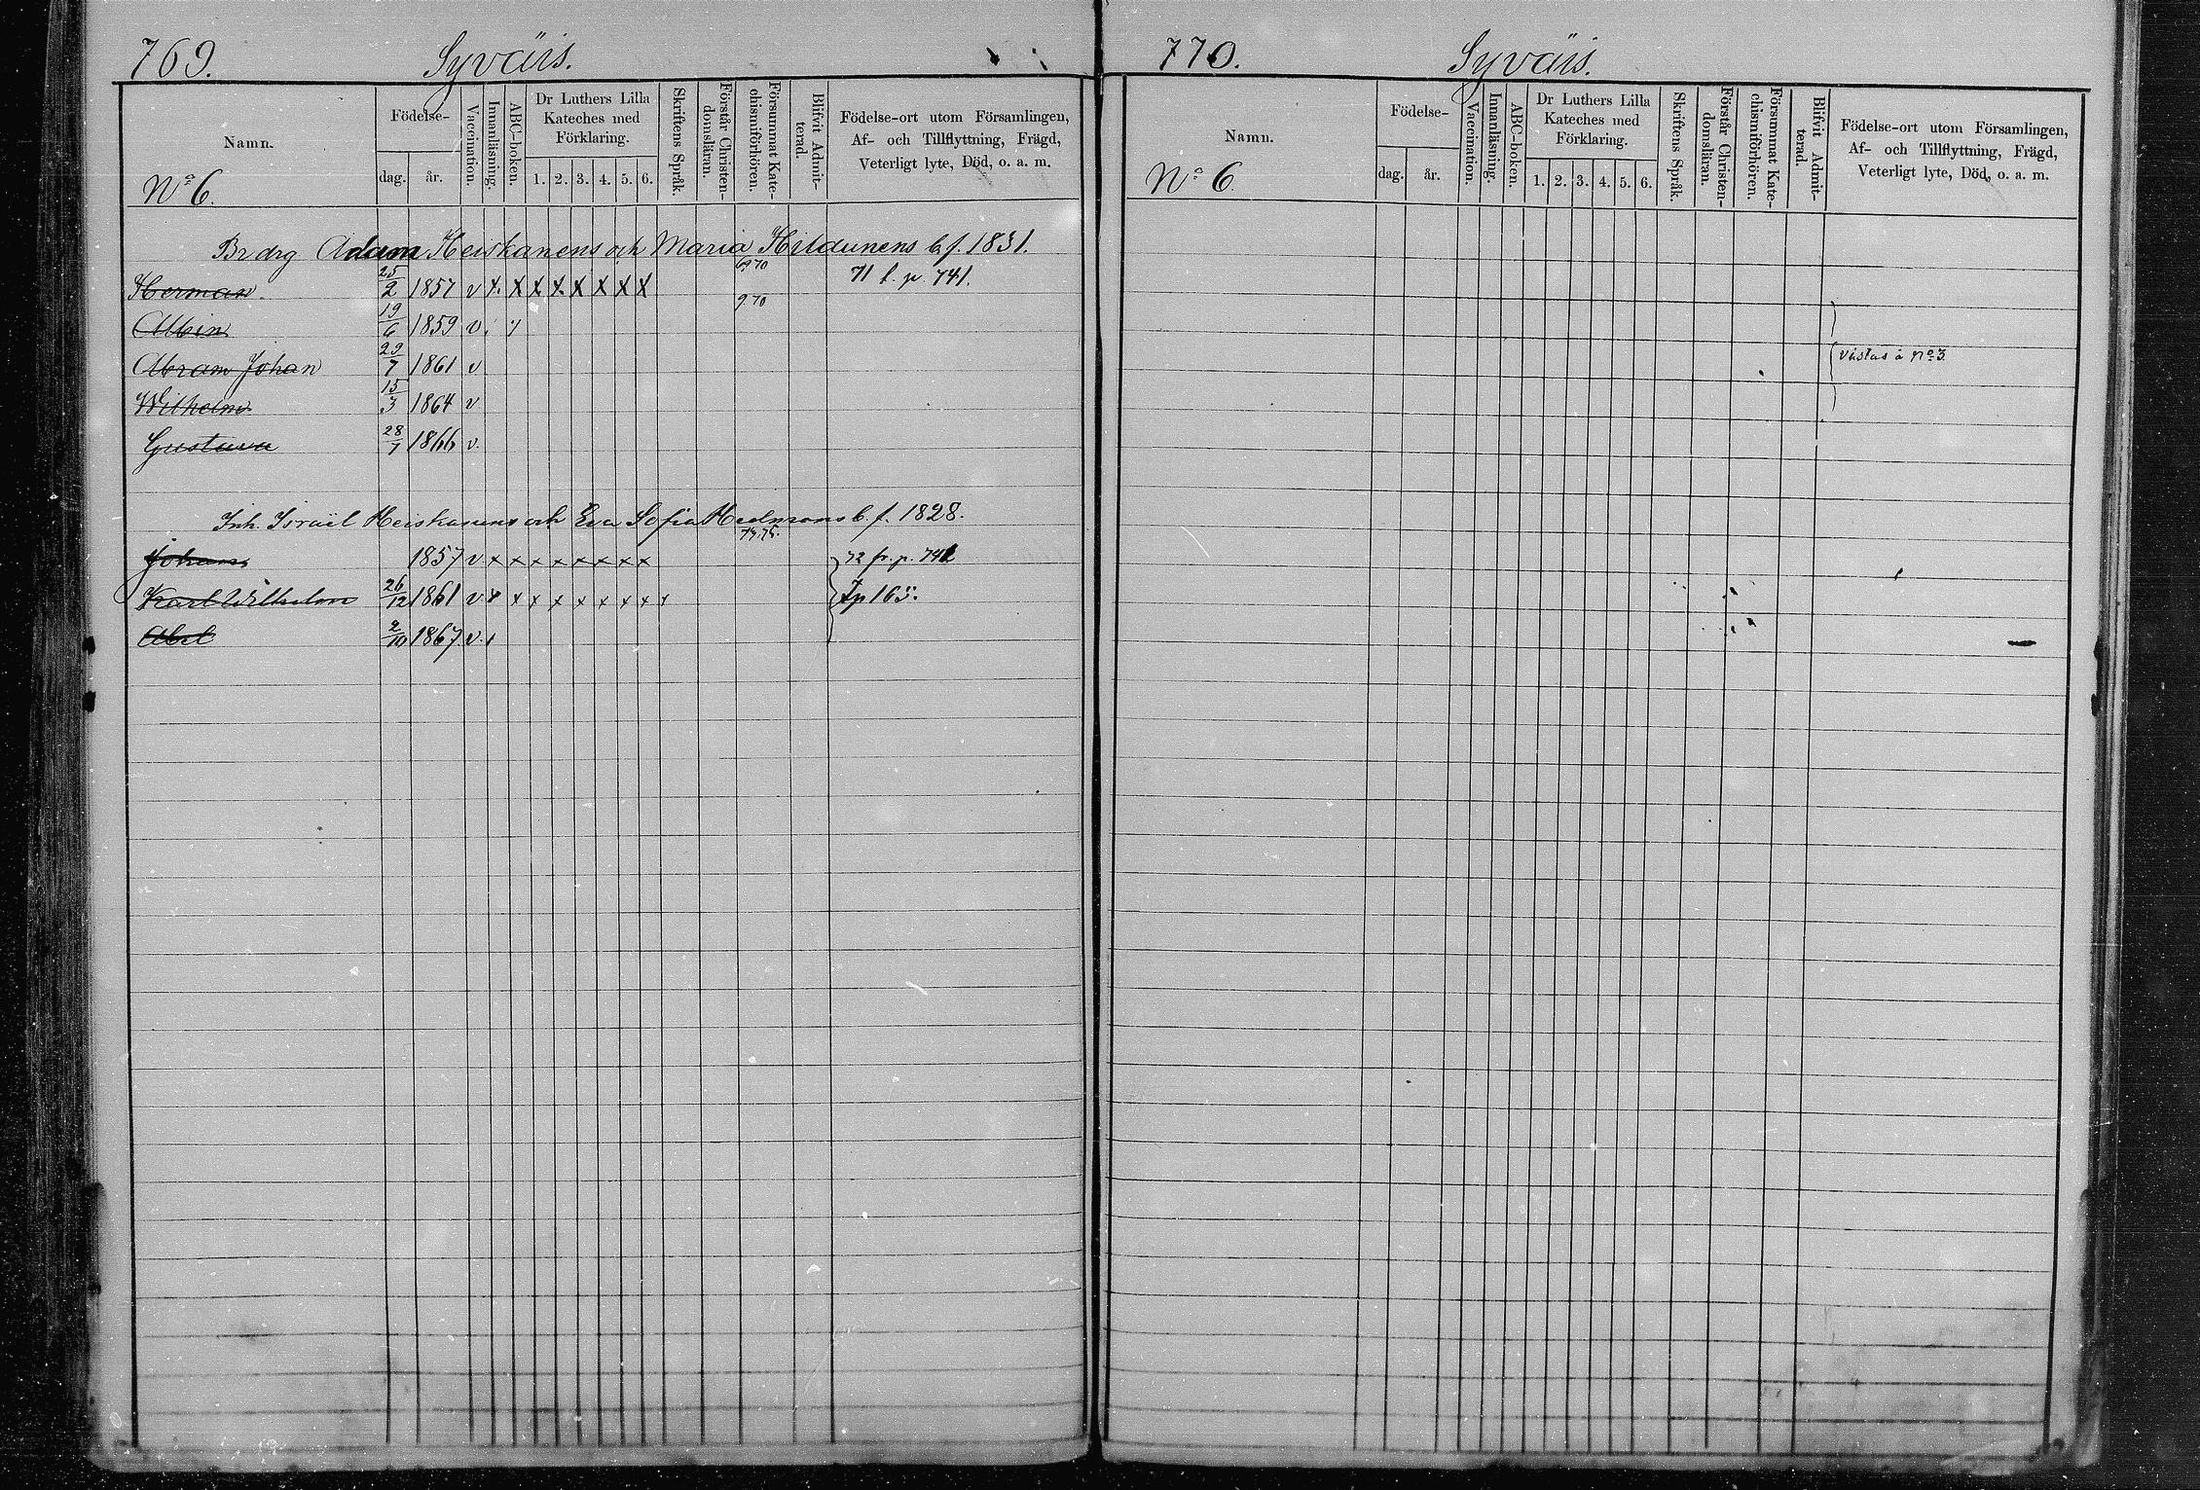 769. Syväris.
Namn.
Födelse-
dag. år.
Vaccination.
Innanläsning.
ABC-boken.
Dr Luthers Lilla
Kateches med
Förklaring.
1. 2. 3. 4. 5. 6.
Skriftens Språk.
Förstår Christen-
domsläran.
Försummat Kate-
chismiförhören.
Blifvit Admit-
terad.
Födelse-ort utom Församlingen,
Af- och Tillflyttning, Frägd,
Veterligt lyte, Död, o. a. m.
No 6.
Br drg Adam Heiskanens och Maria Hildunens b. f. 1831.
Herman. 25/2 1857 v x x x x x x x x 6970 71 f. p 741.
Albin 19/6 1859 v 970
Abram Johan 29/7 1861 v
Wilhelm 15/3 1864 v
Gustava 28/7 1866 v.
Inh. Israël Heiskanens och Eva Sofia Hedmans b. f. 1828.
Johan 1857 v x x x x x x x x 74.75. 72 fr. p. 741
Karl Wilhelm 26/12 1861 v x x x x x x x x x p 165.
Abel 2/10 1867 v.
770. Syväis.
Namn.
Födelse-
dag. år.
Vaccination.
Innanläsning.
ABC-boken.
Dr Luthers Lilla
Kateches med
Förklaring.
1. 2. 3. 4. 5. 6.
Skriftens Språk.
Förstår Christen-
domsläran.
Försummat Kate-
chismiförhören.
Blifvit Admit-
terad.
Födelse-ort utom Församlingen,
Af- och Tillflyttning, Frägd,
Veterligt lyte, Död, o. a. m.
No 6.
vistas å No 3